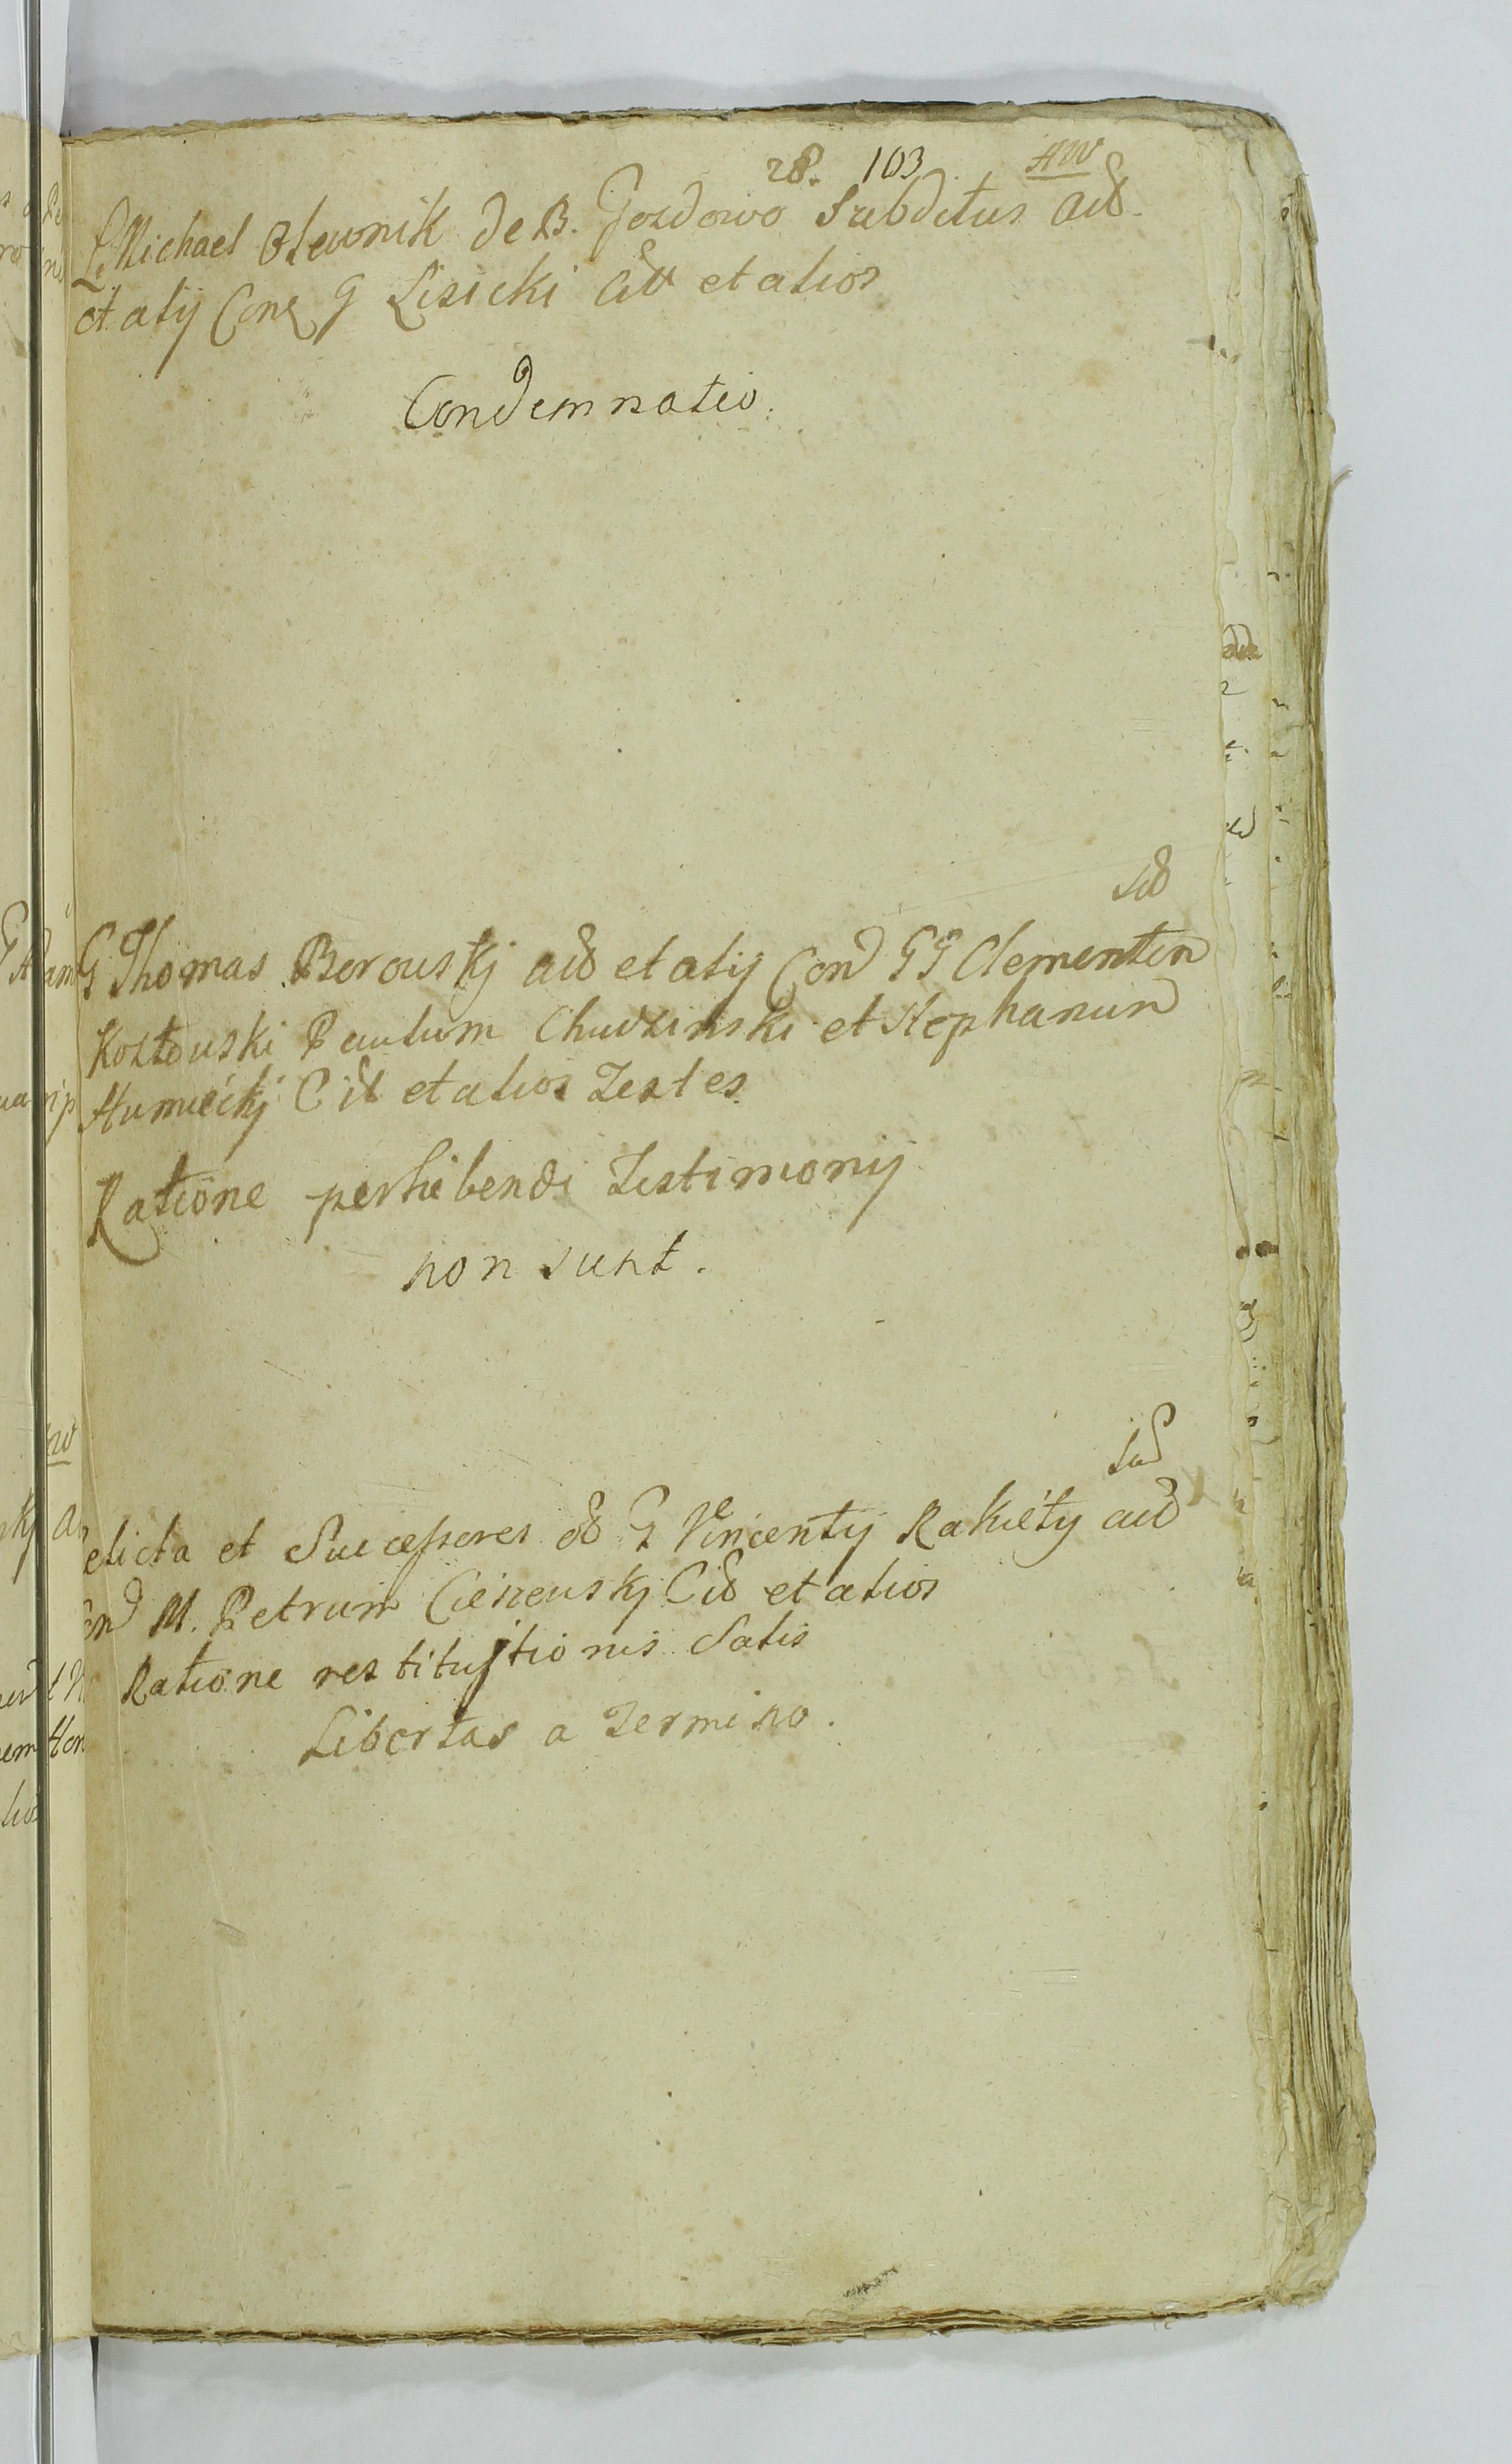 28. 103. AW
L. Michael Olewnik de B. Gozdowo Subditus Actt.
et alij Con G Lisicki Citt et alios
Condemnatio.
G Thomas Borouskj act et alij Con GG Clementem
Kozłouski Paulum Chudzinski et Stephanum
Humięckj Cit et alios Testes
Ratione perhibendi Testimonij
non sunt.
elicta et Successores G Vincentij Rakiety act
Con M. Petrum Cieszeuskj Cit et alios
Ratione restitutionis Salis
Libertas a Termino.